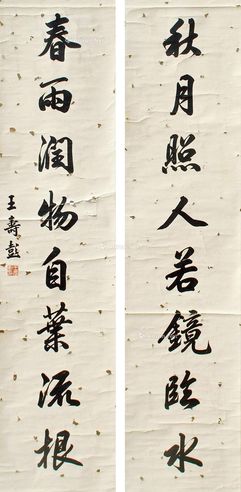 秋月照人若鏡臨水
春雨潤物自葉流根
王壽彭